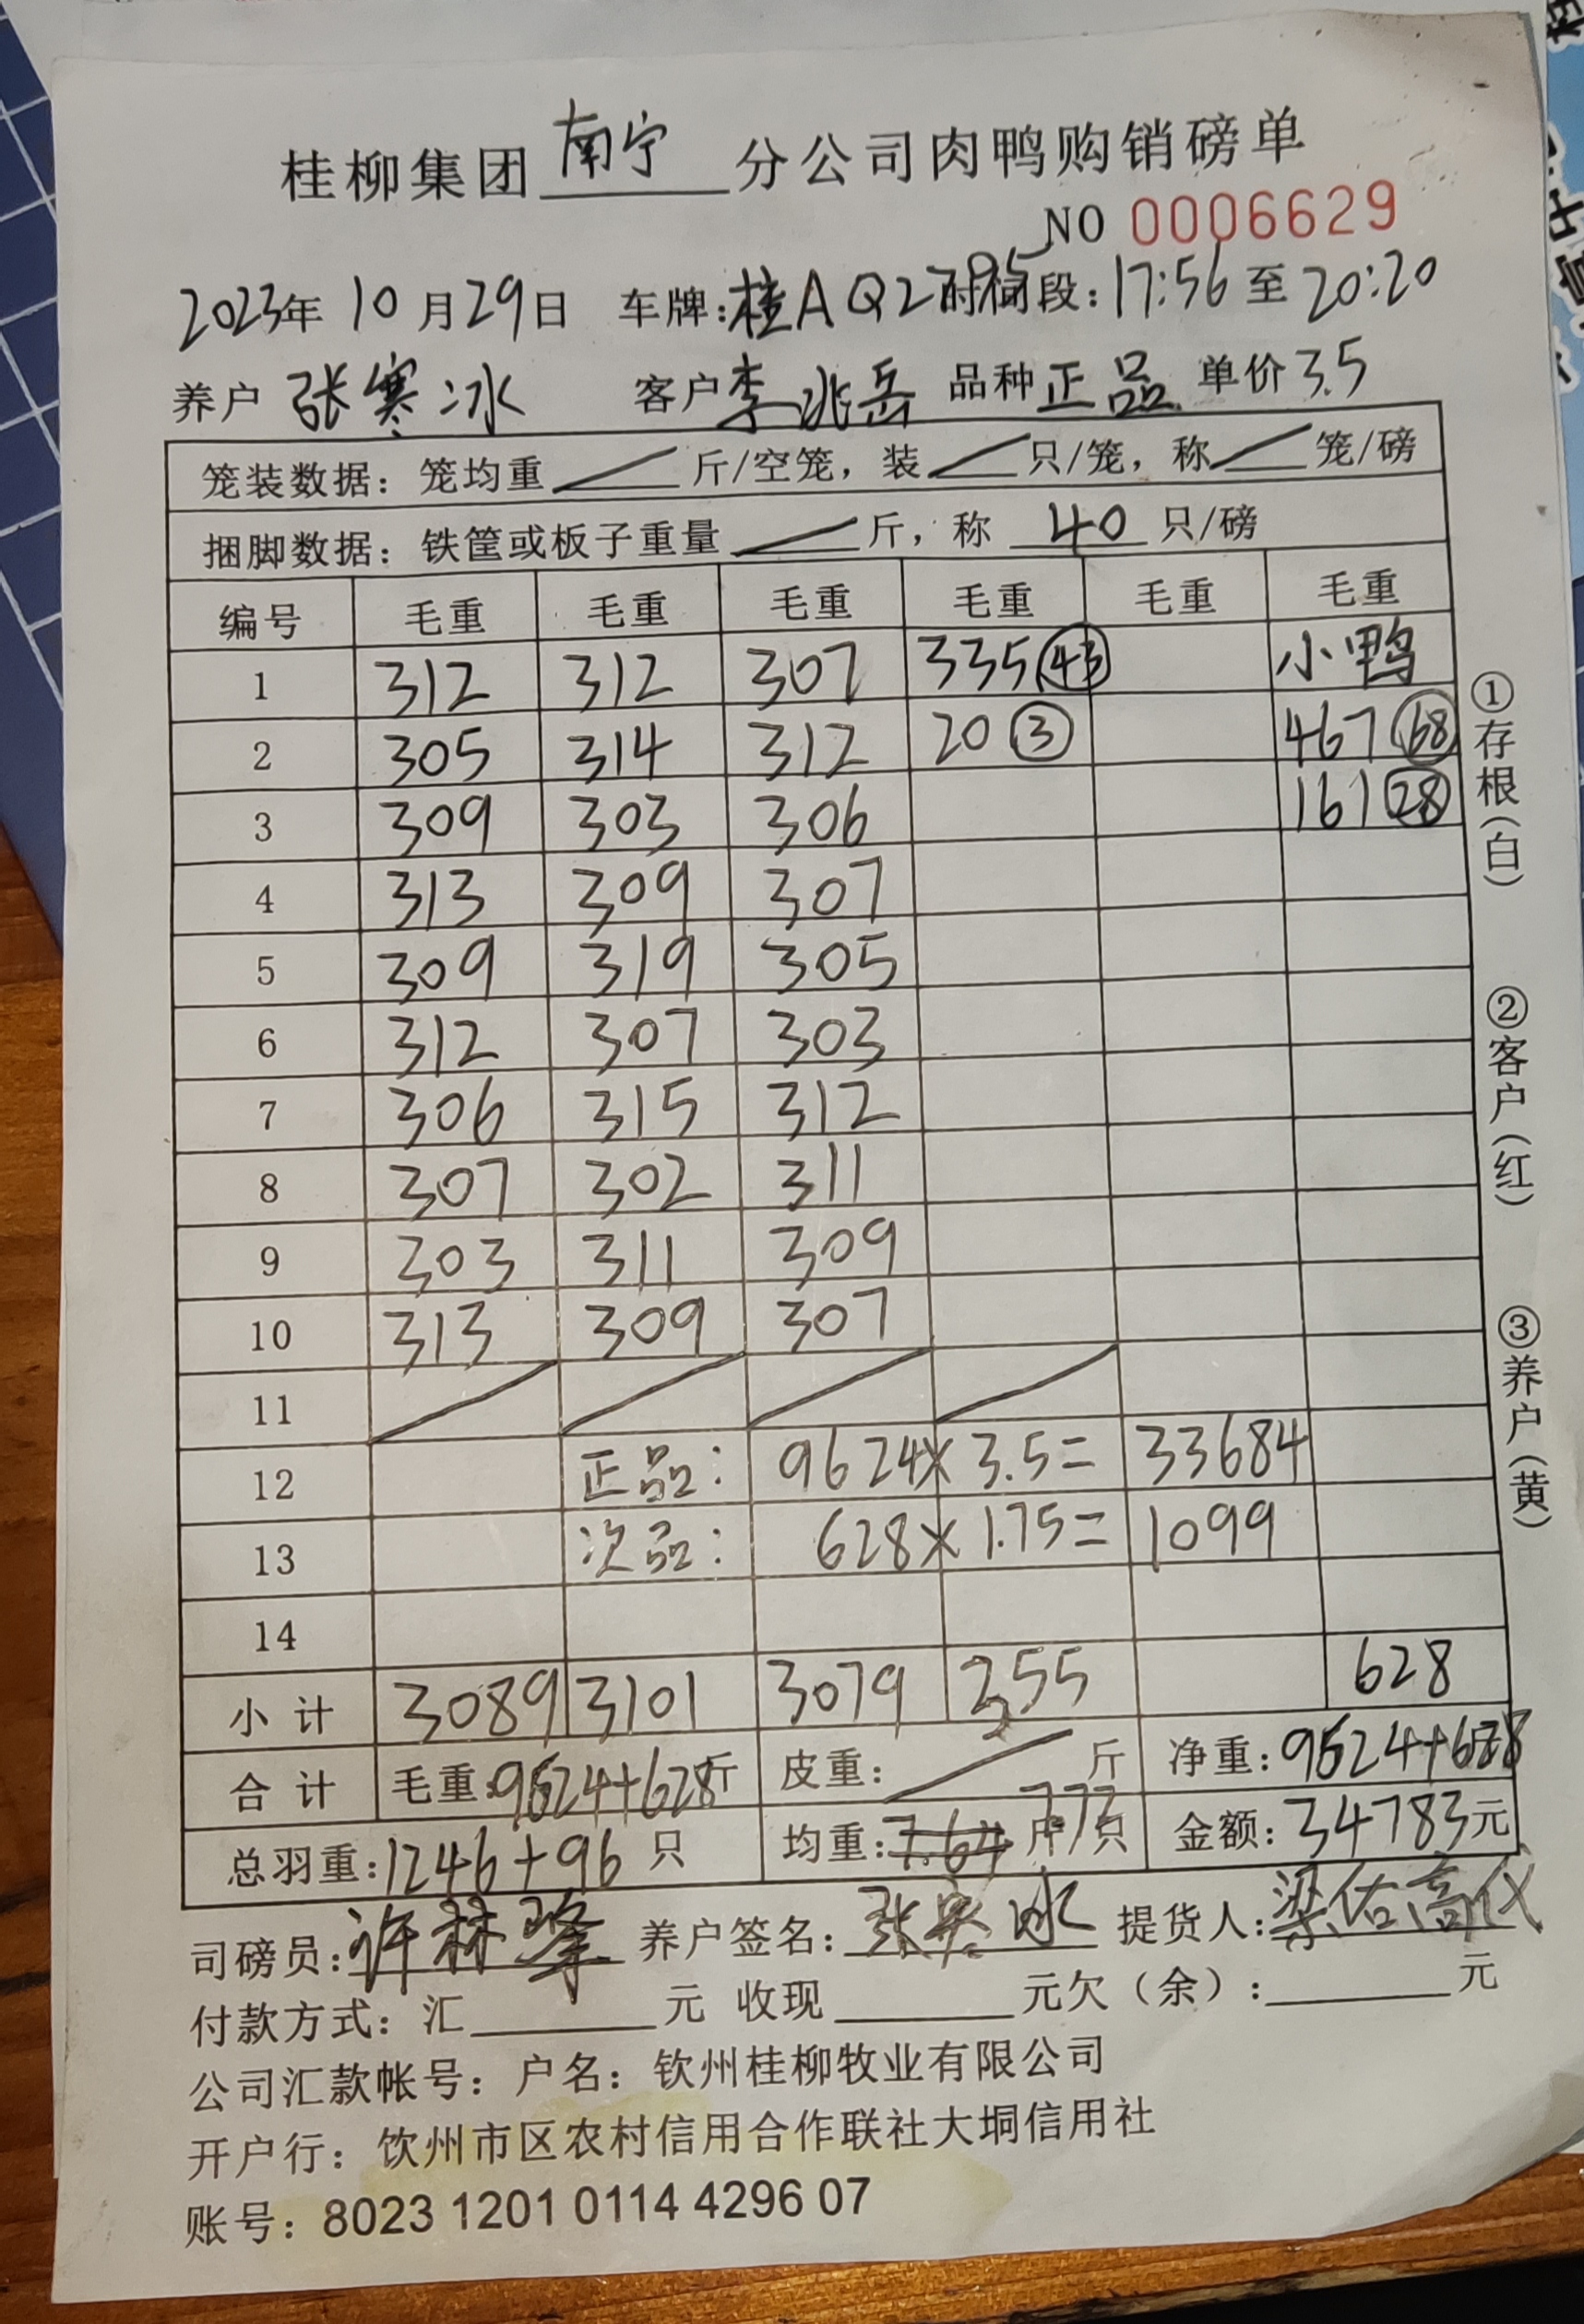 桂柳集团南宁分公司肉鸭购销磅单
NO 0006629
2023年10月29日 车牌:桂AQ2 时间段:17:56至20:20
养户 张寒冰 客户 李兆岳 品种 正品 单价 3.5
笼装数据:笼均重 斤/空笼,装 只/笼,称 笼/磅
捆脚数据:铁筐或板子重量 斤,称 40 只/磅
编号 毛重 毛重 毛重 毛重 毛重 毛重
1 312 312 307 335 43 小鸭
2 305 314 312 20 3 467 68
3 309 303 306 161 28
4 313 309 307
5 309 319 305
6 312 307 303
7 306 315 312
8 307 302 311
9 303 311 309
10 313 309 307
11
12 正品: 9624×3.5= 33684
13 次品: 628×1.75= 1099
14
小计 3089 3101 3079 355 628
合计 毛重:9624+628斤 皮重: 斤 净重:9624+628
总羽重:1246+96只 均重:7.64 7.73 斤/只 金额:34783元
司磅员:许林峰 养户签名:张寒冰 提货人:
付款方式:汇 元 收现 元欠(余): 元
公司汇款帐号:户名:钦州桂柳牧业有限公司
开户行:钦州市区农村信用合作联社大垌信用社
账号:8023 1201 0114 4296 07
①存根(白)
②客户(红)
③养户(黄)